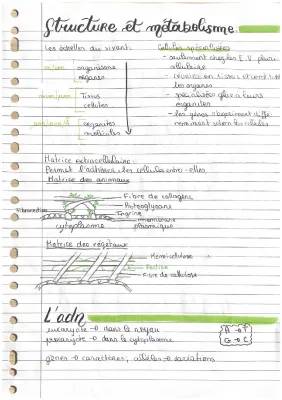 Structure et métabolisme
Les échelles du vivant:
organisme
organes
Tissus
cellules
organites
molécules
Cellules spécialisées
- seulement chez les E.V. pluri-
cellulaire
les organes
- spécialisées grâce à leurs
organites
- les gènes s'expriment diffé-
remment selon les cellules
Matrice extracellulaire:
Permet l'adhérence des cellules entre-elles
Matrice des animaux
Fibre de collagène
Protéoglycane
Fibronectine
membrane
plasmique
cytoplasme
Matrice des végétaux
Hémicellulose
Pectine
Fibre de cellulose
L'adn
eucaryote → dans le noyau
procaryote → dans le cytoplasme
A → T
G → C
gènes → caractères, allèles → variations